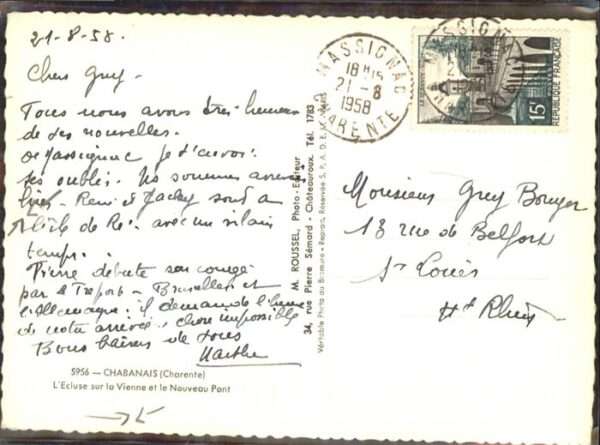 21-8-58.
Cher Guy -
Tous nous avons été heureux
de des nouvelles.
De Massignac je t'envoi
Nous sommes
Rémi et Jacky sont à
l'île de Ré. avec un vilain
temps.
Pierre débute son congé
par le Tréport - Bruxelles et
l'Allemagne : il demande l'heure
de notre arrivée, chose impossible
Bons baisers de tous
Marthe
5956 — CHABANAIS (Charente)
L'Ecluse sur la Vienne et le Nouveau Pont
M. ROUSSEL, Photo-Editeur
34, rue Pierre Sémard - Châteauroux. Tél. 1783
Véritable Photo au Bromure - Reprod. Réservée
MASSIGNAC
18H15
21-8
1958
CHARENTE
MASSIGNAC
15F
REPUBLIQUE FRANÇAISE
Monsieur Guy Bouyer
13 rue de Belfort
St Louis
Ht Rhin